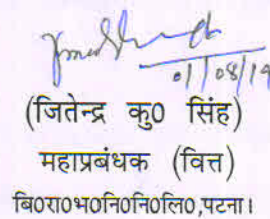 01/08/19
(जितेन्द्र कु0 सिंह)
महाप्रबंधक (वित्त)
बि0रा0भ0नि0नि0लि0,पटना।